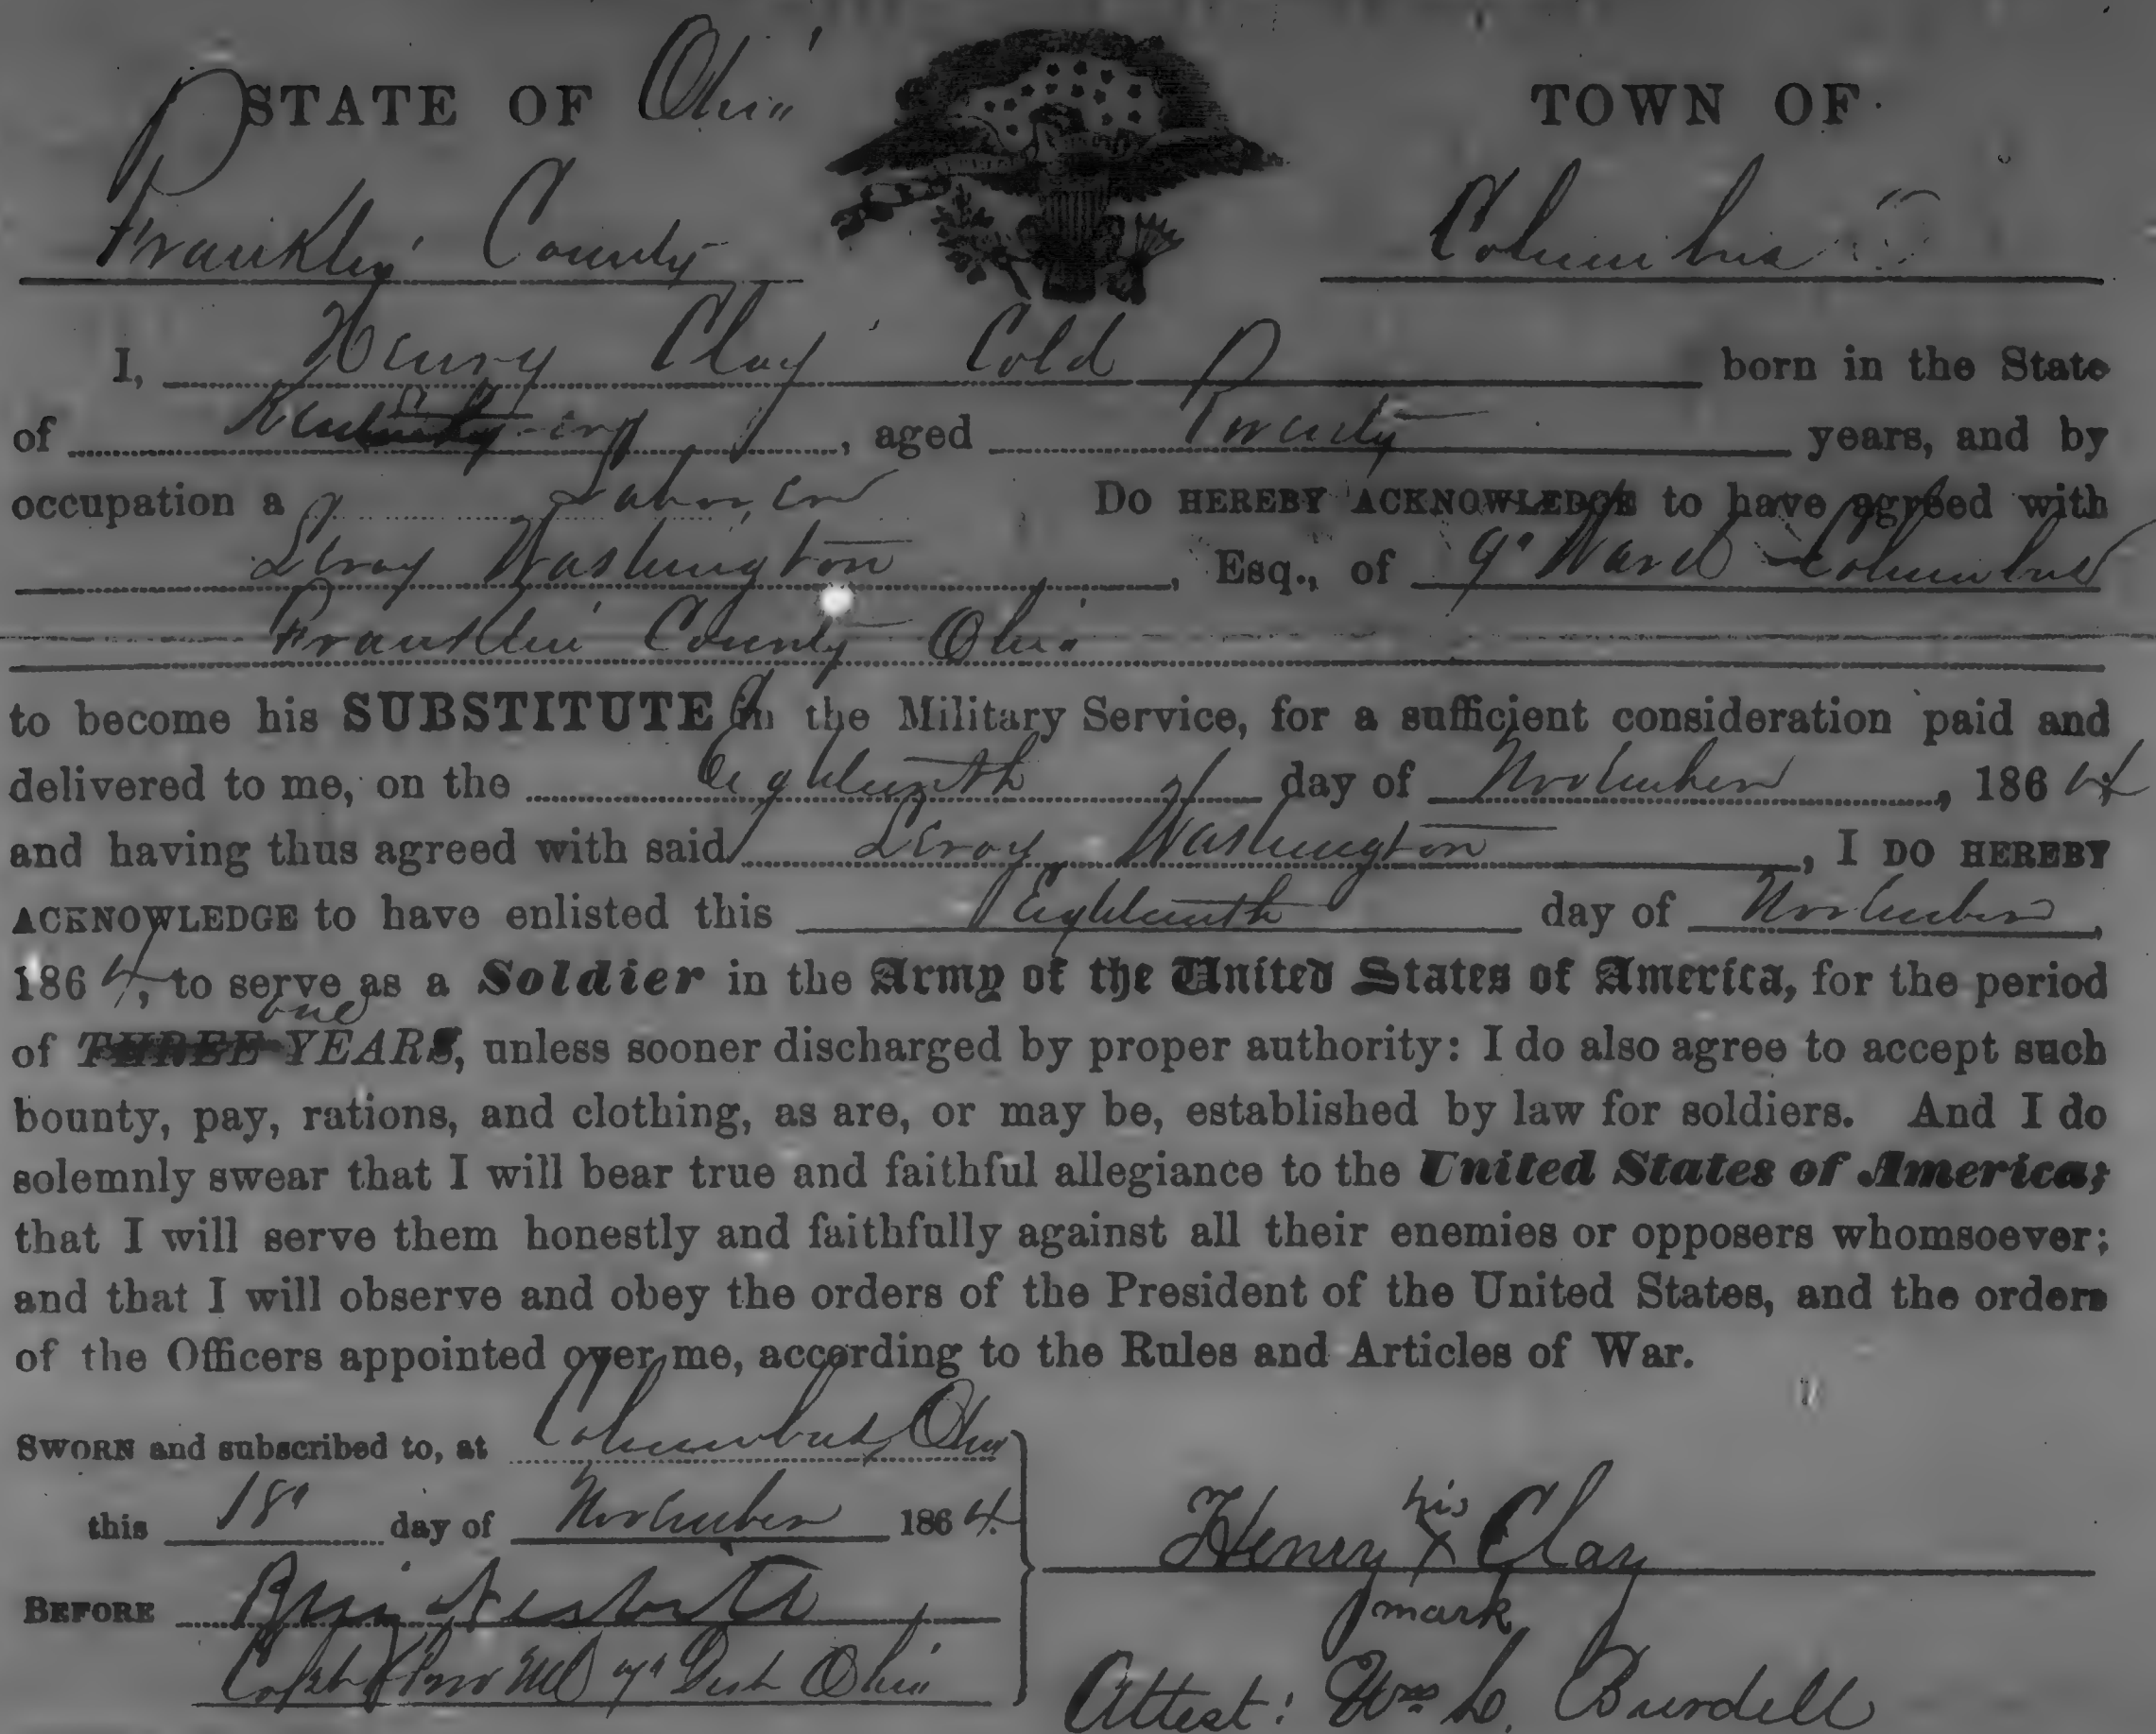 STATE OF Ohio
TOWN OF
Franklin County
Columbus
I, Henry Clay Cold born in the State
of , aged Twenty years, and by
occupation a Laborer Do HEREBY ACKNOWLEDGE to have agreed with
Leroy Washington, Esq., of 9" Ward Columbus
Franklin County Ohio
to become his SUBSTITUTE in the Military Service, for a sufficient consideration paid and
delivered to me, on the Eighteenth day of November, 1864
and having thus agreed with said Leroy Washington, I DO HEREBY
ACKNOWLEDGE to have enlisted this Eighteenth day of November,
1864, to serve as a Soldier in the Army of the United States of America, for the period
one
of THREE YEARS, unless sooner discharged by proper authority: I do also agree to accept such
bounty, pay, rations, and clothing, as are, or may be, established by law for soldiers. And I do
solemnly swear that I will bear true and faithful allegiance to the United States of America;
that I will serve them honestly and faithfully against all their enemies or opposers whomsoever;
and that I will observe and obey the orders of the President of the United States, and the orders
of the Officers appointed over me, according to the Rules and Articles of War.
SWORN and subscribed to, at Columbus, Ohio
this 18" day of November 1864.
his
Henry X Clay
mark
BEFORE Nesbitt
Capt & Pro Ml 7" Dist Ohio
Attest: Wm L. Burdell